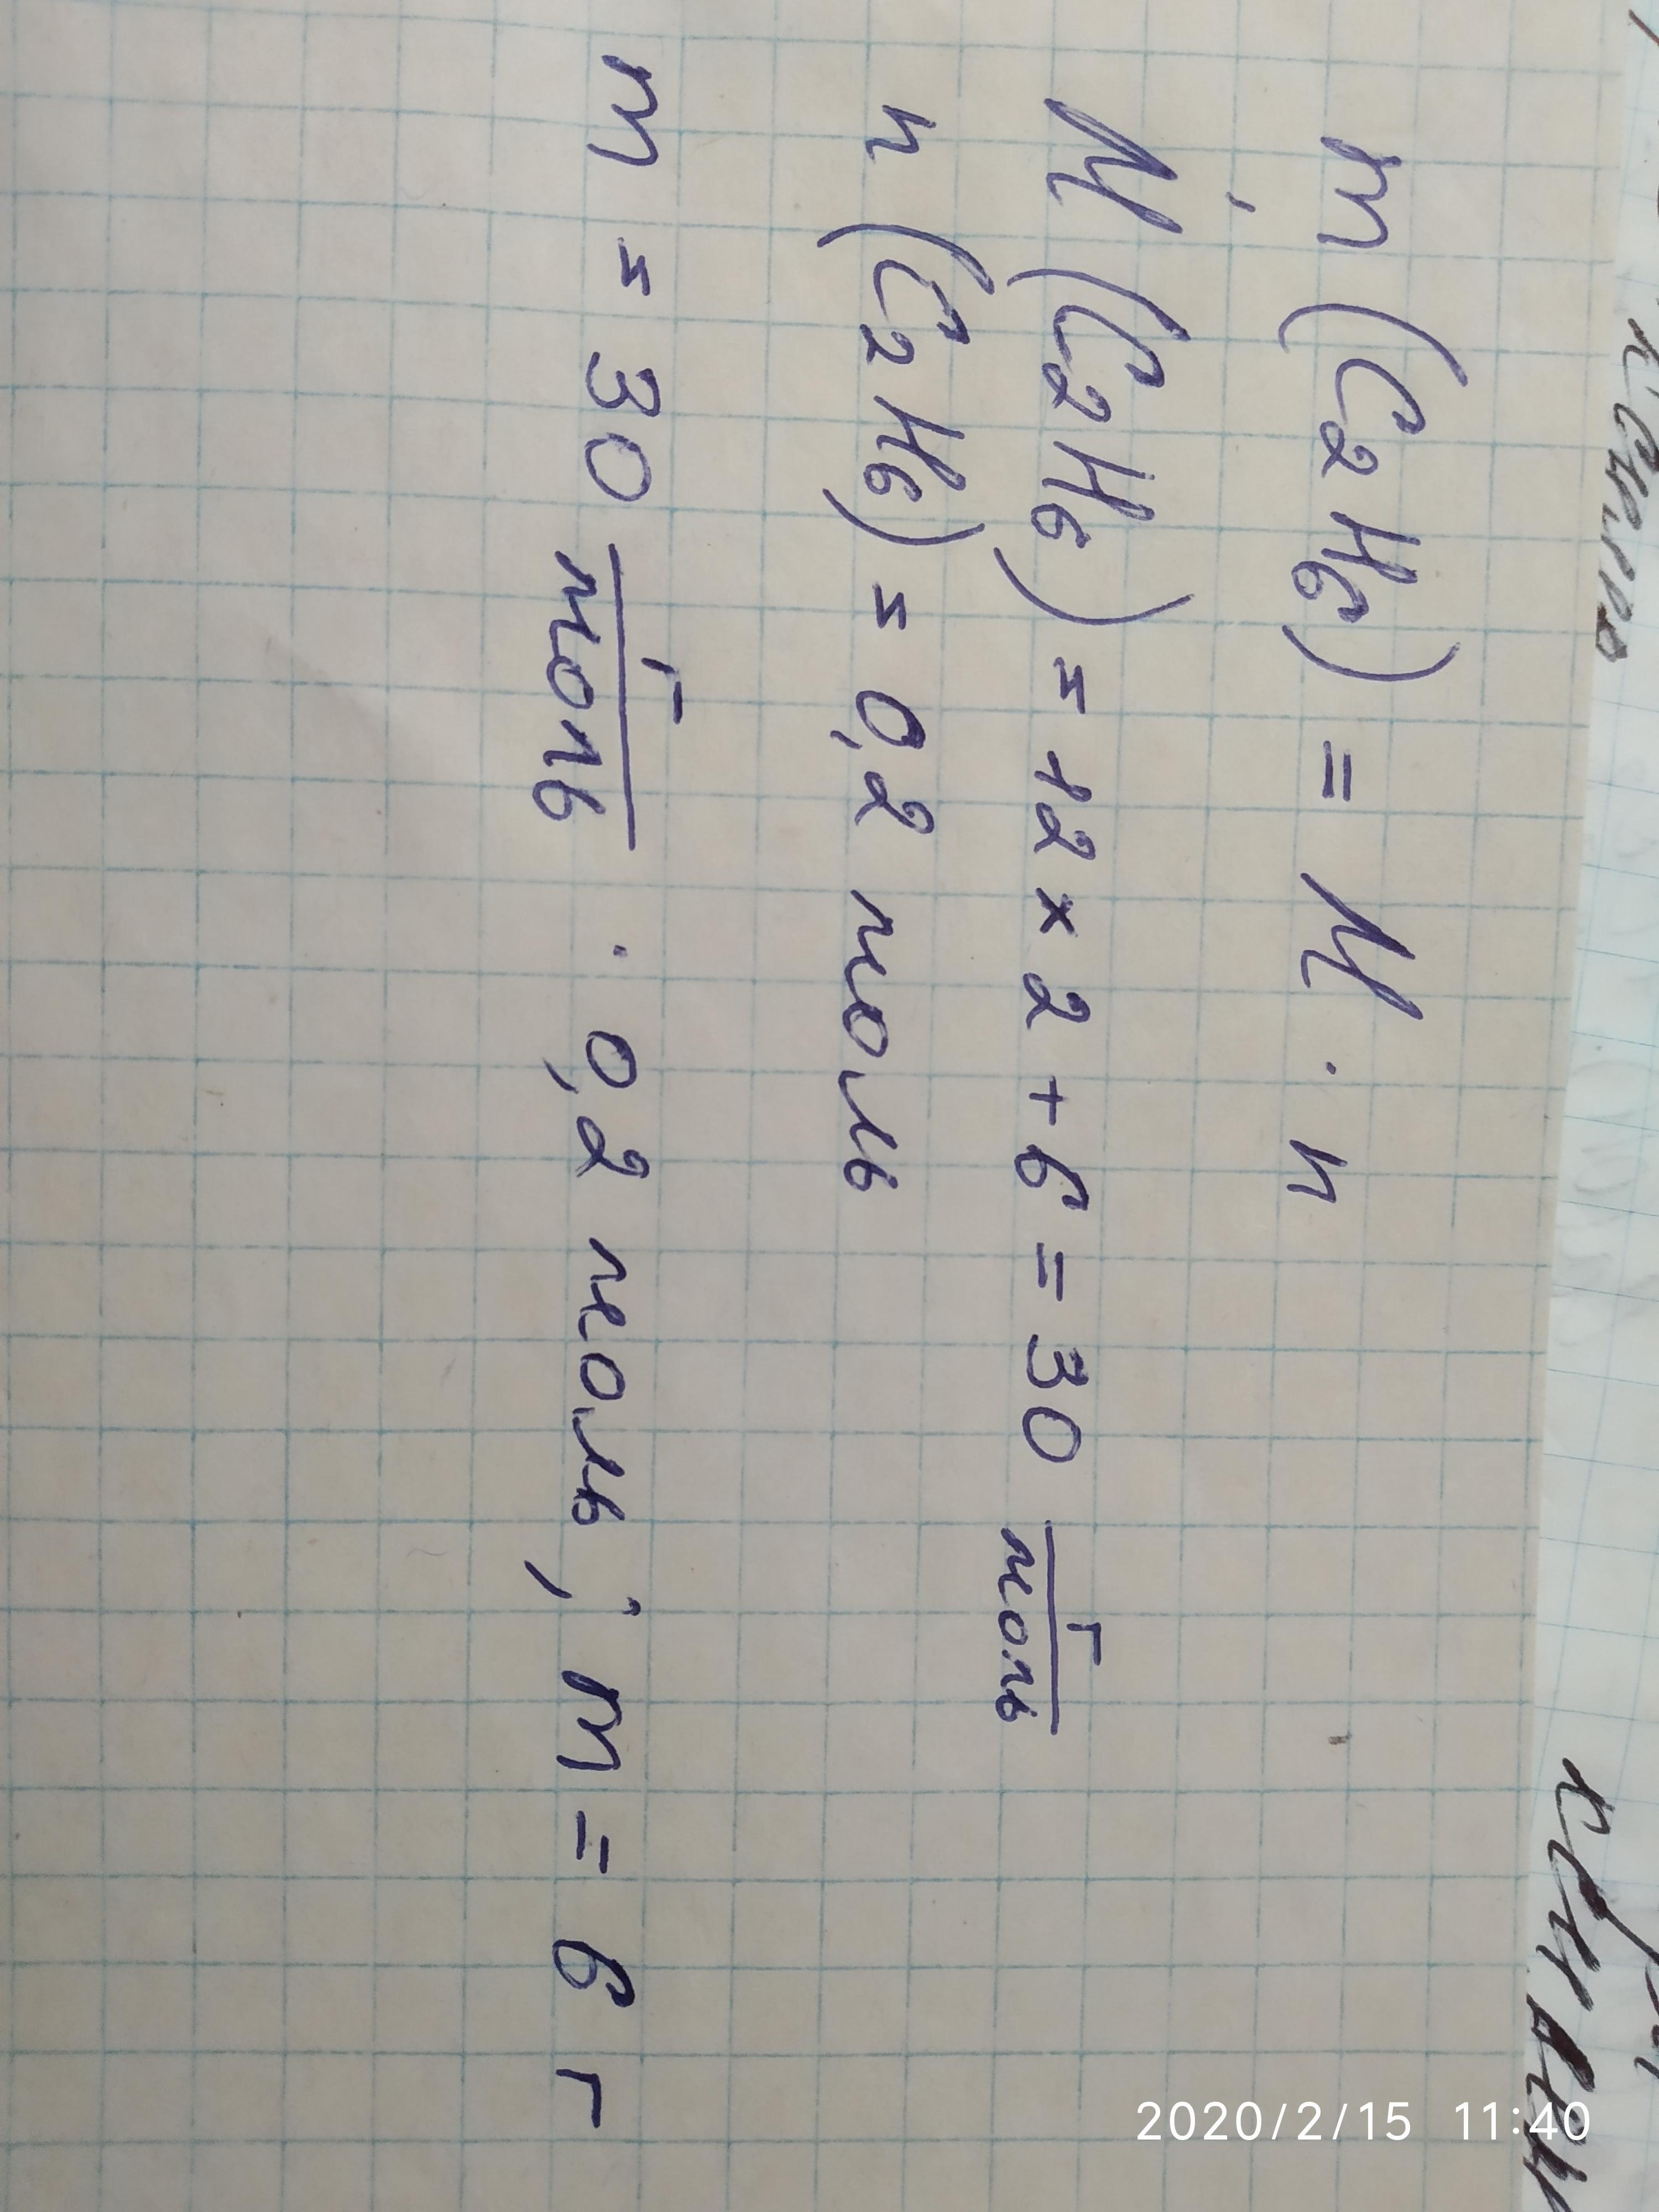 m (C₂H₆) = M · n
M (C₂H₆) = 12 × 2 + 6 = 30 г/моль
n (C₂H₆) = 0,2 моль
m = 30 г/моль · 0,2 моль; m = 6 г
2020/2/15 11:40